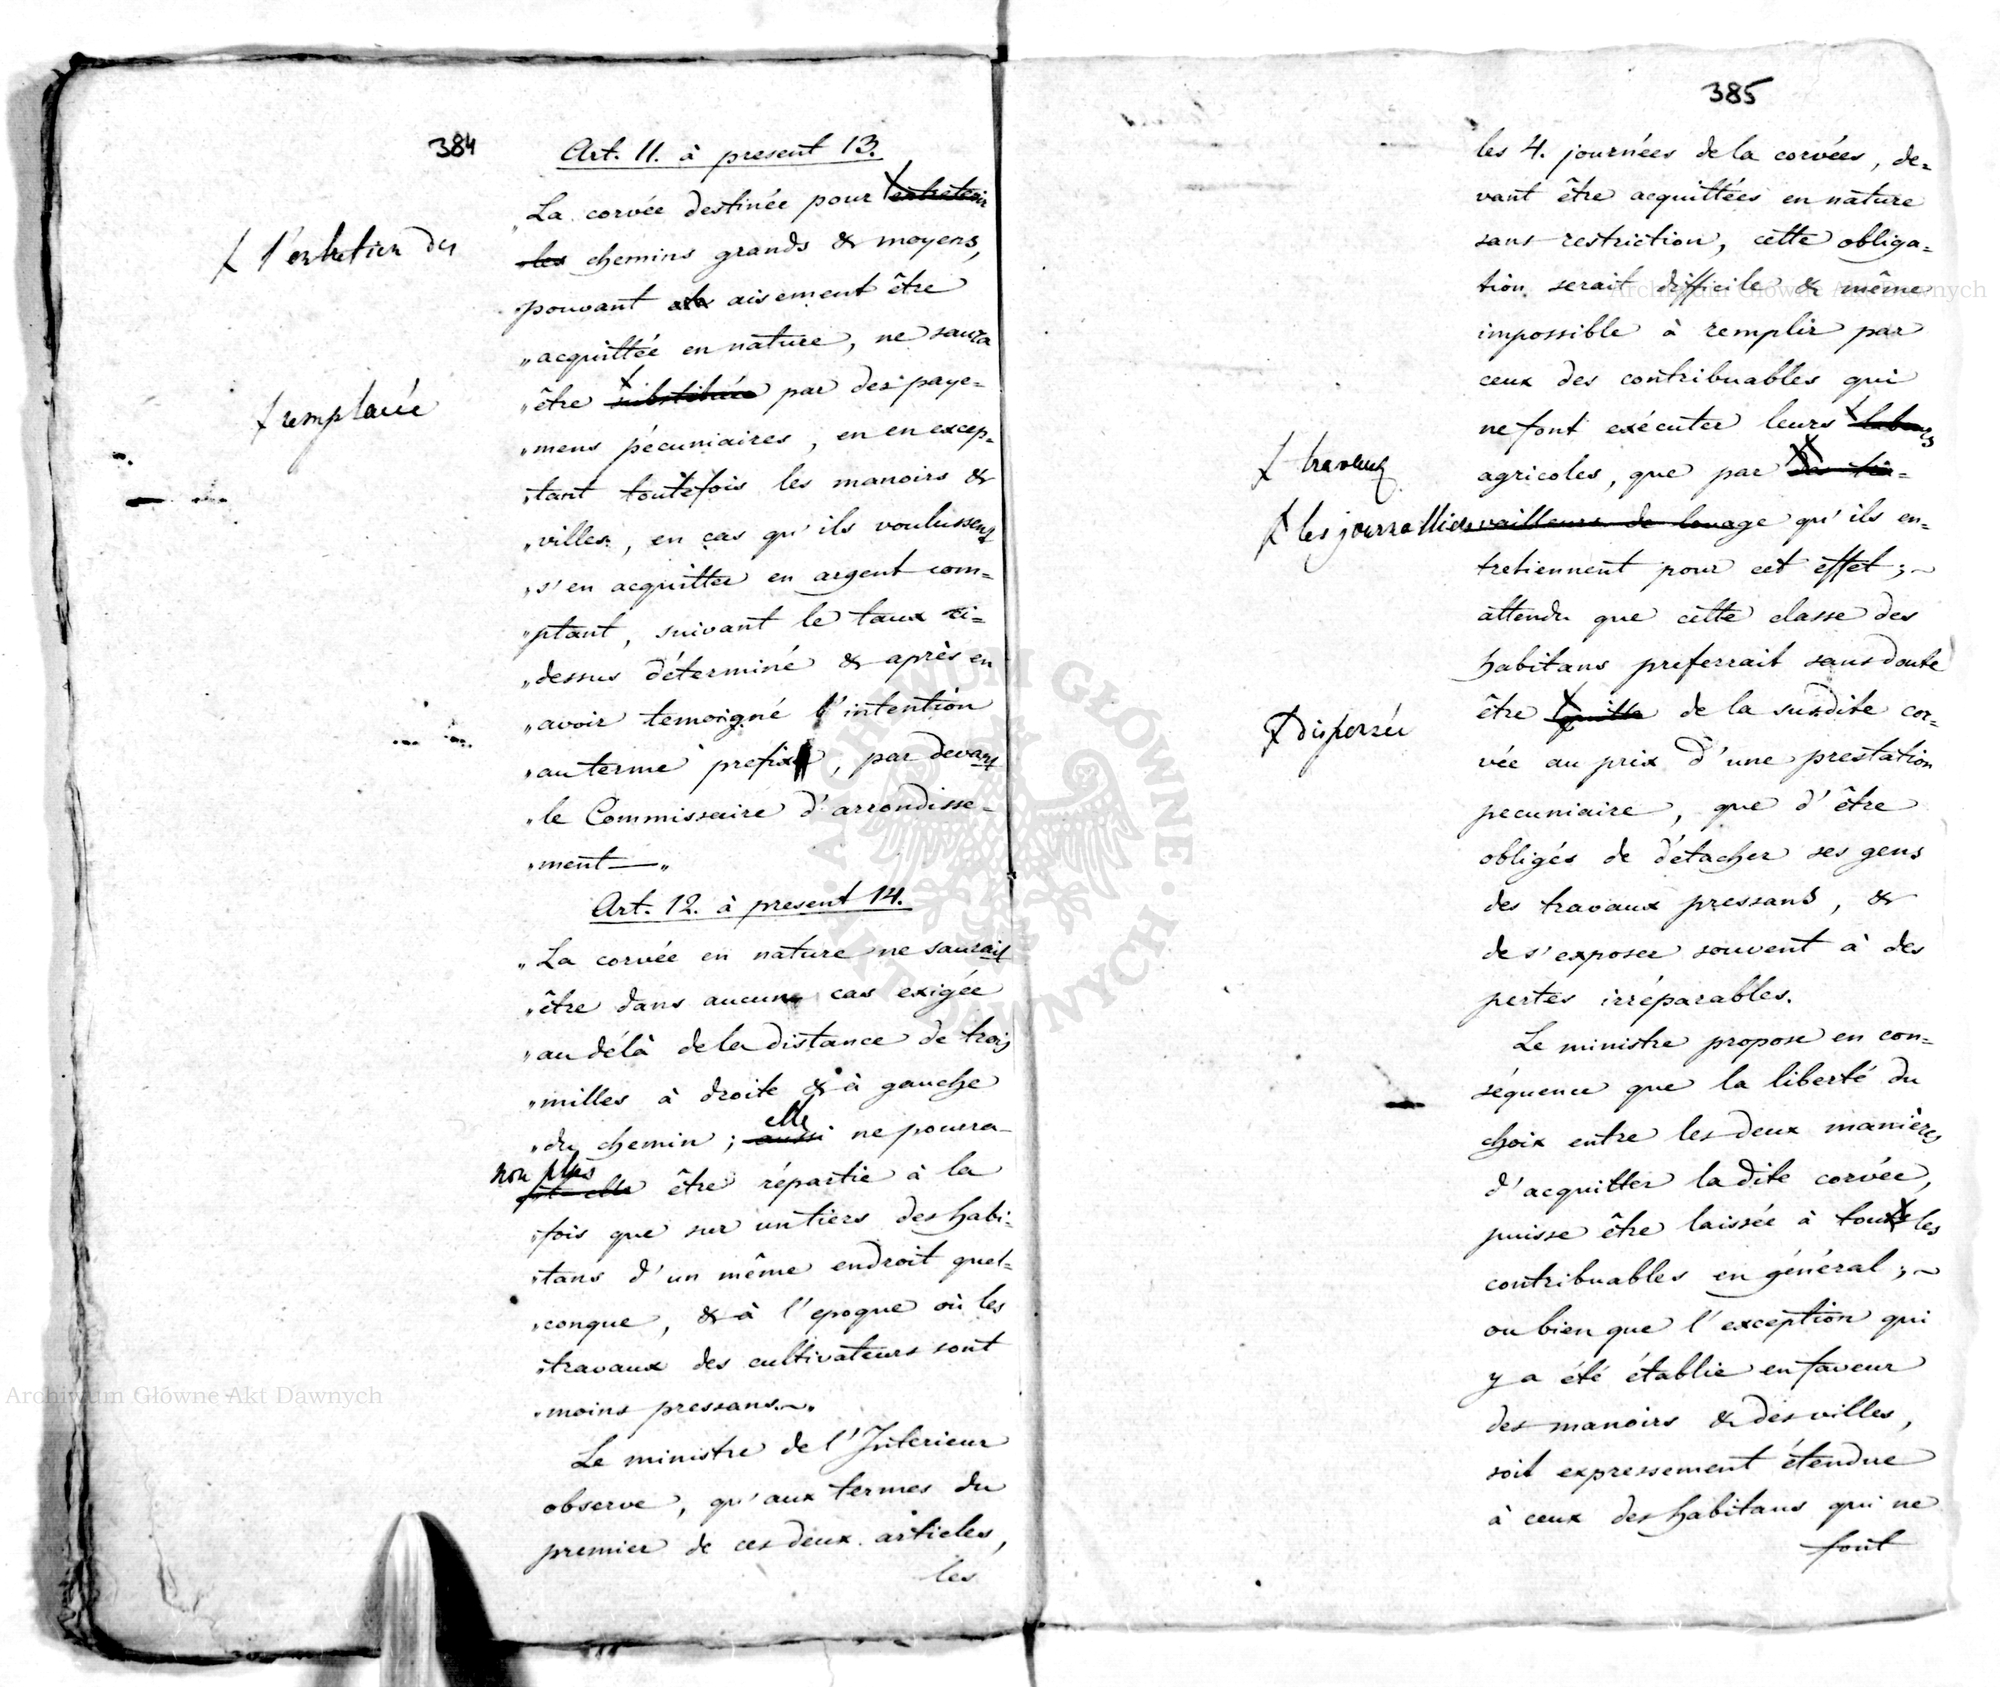 384
Art. 11. à present 13.
„La corvée destinée pour entretenir
les chemins grands & moyens,
„pouvant aisement être
„acquittée en nature, ne saura
„être substituée par des paye=
„mens pécuniaires, en en excep=
„tant toutefois les manoirs &
„villes, en cas qu'ils voulussent
„s'en acquitter en argent com=
„ptant, suivant le taux ci=
„dessus déterminé & après en
„avoir temoigné l'intention
„au terme prefix, par devant
„le Commissaire d'arrondisse=
„ment—„
ł l'entretien des
ł remplacée
Art. 12. à present 14.
„La corvée en nature ne saurait
„être dans aucun cas exigée
„au délà de la distance de trois
„milles à droite & à gauche
elle
„du chemin; aussi ne pourra-
non plus
elle être répartie à la
„fois que sur un tiers des habi=
„tans d'un même endroit quel=
„conque, & à l'epoque où les
„travaux des cultivateurs sont
„moins pressans.~„
Le ministre de l'Interieur
observe, qu'aux termes du
premier de ces deux articles,
les
385
les 4. journées de la corvées, de=
vant être acquittées en nature
sans restriction, cette obliga=
tion serait difficile & même
impossible à remplir par
ceux des contribuables qui
ne font exécuter leurs labours
agricoles, que par des tra=
vailleurs de louage qu'ils en=
tretiennent pour cet effet;~
attendu que cette classe des
habitans preferrait sans doute
être quitte de la susdite cor=
vée au prix d'une prestation
pecuniaire, que d'être
obligés de détacher ses gens
des travaux pressans, &
de s'exposer souvent à des
pertes irréparables.
ł travaux
ł les journalliers
ł dispensée
Le ministre propose en con=
séquence que la liberté du
choix entre les deux manières
d'acquitter la dite corvée,
puisse être laissée à tous les
contribuables en général;~
ou bien que l'exception qui
y a été établie en faveur
des manoirs & des villes,
soit expressement étendue
à ceux des habitans qui ne
font
Archiwum Główne Akt Dawnych
Archiwum Główne Akt Dawnych
ARCHIWUM GŁÓWNE AKT DAWNYCH